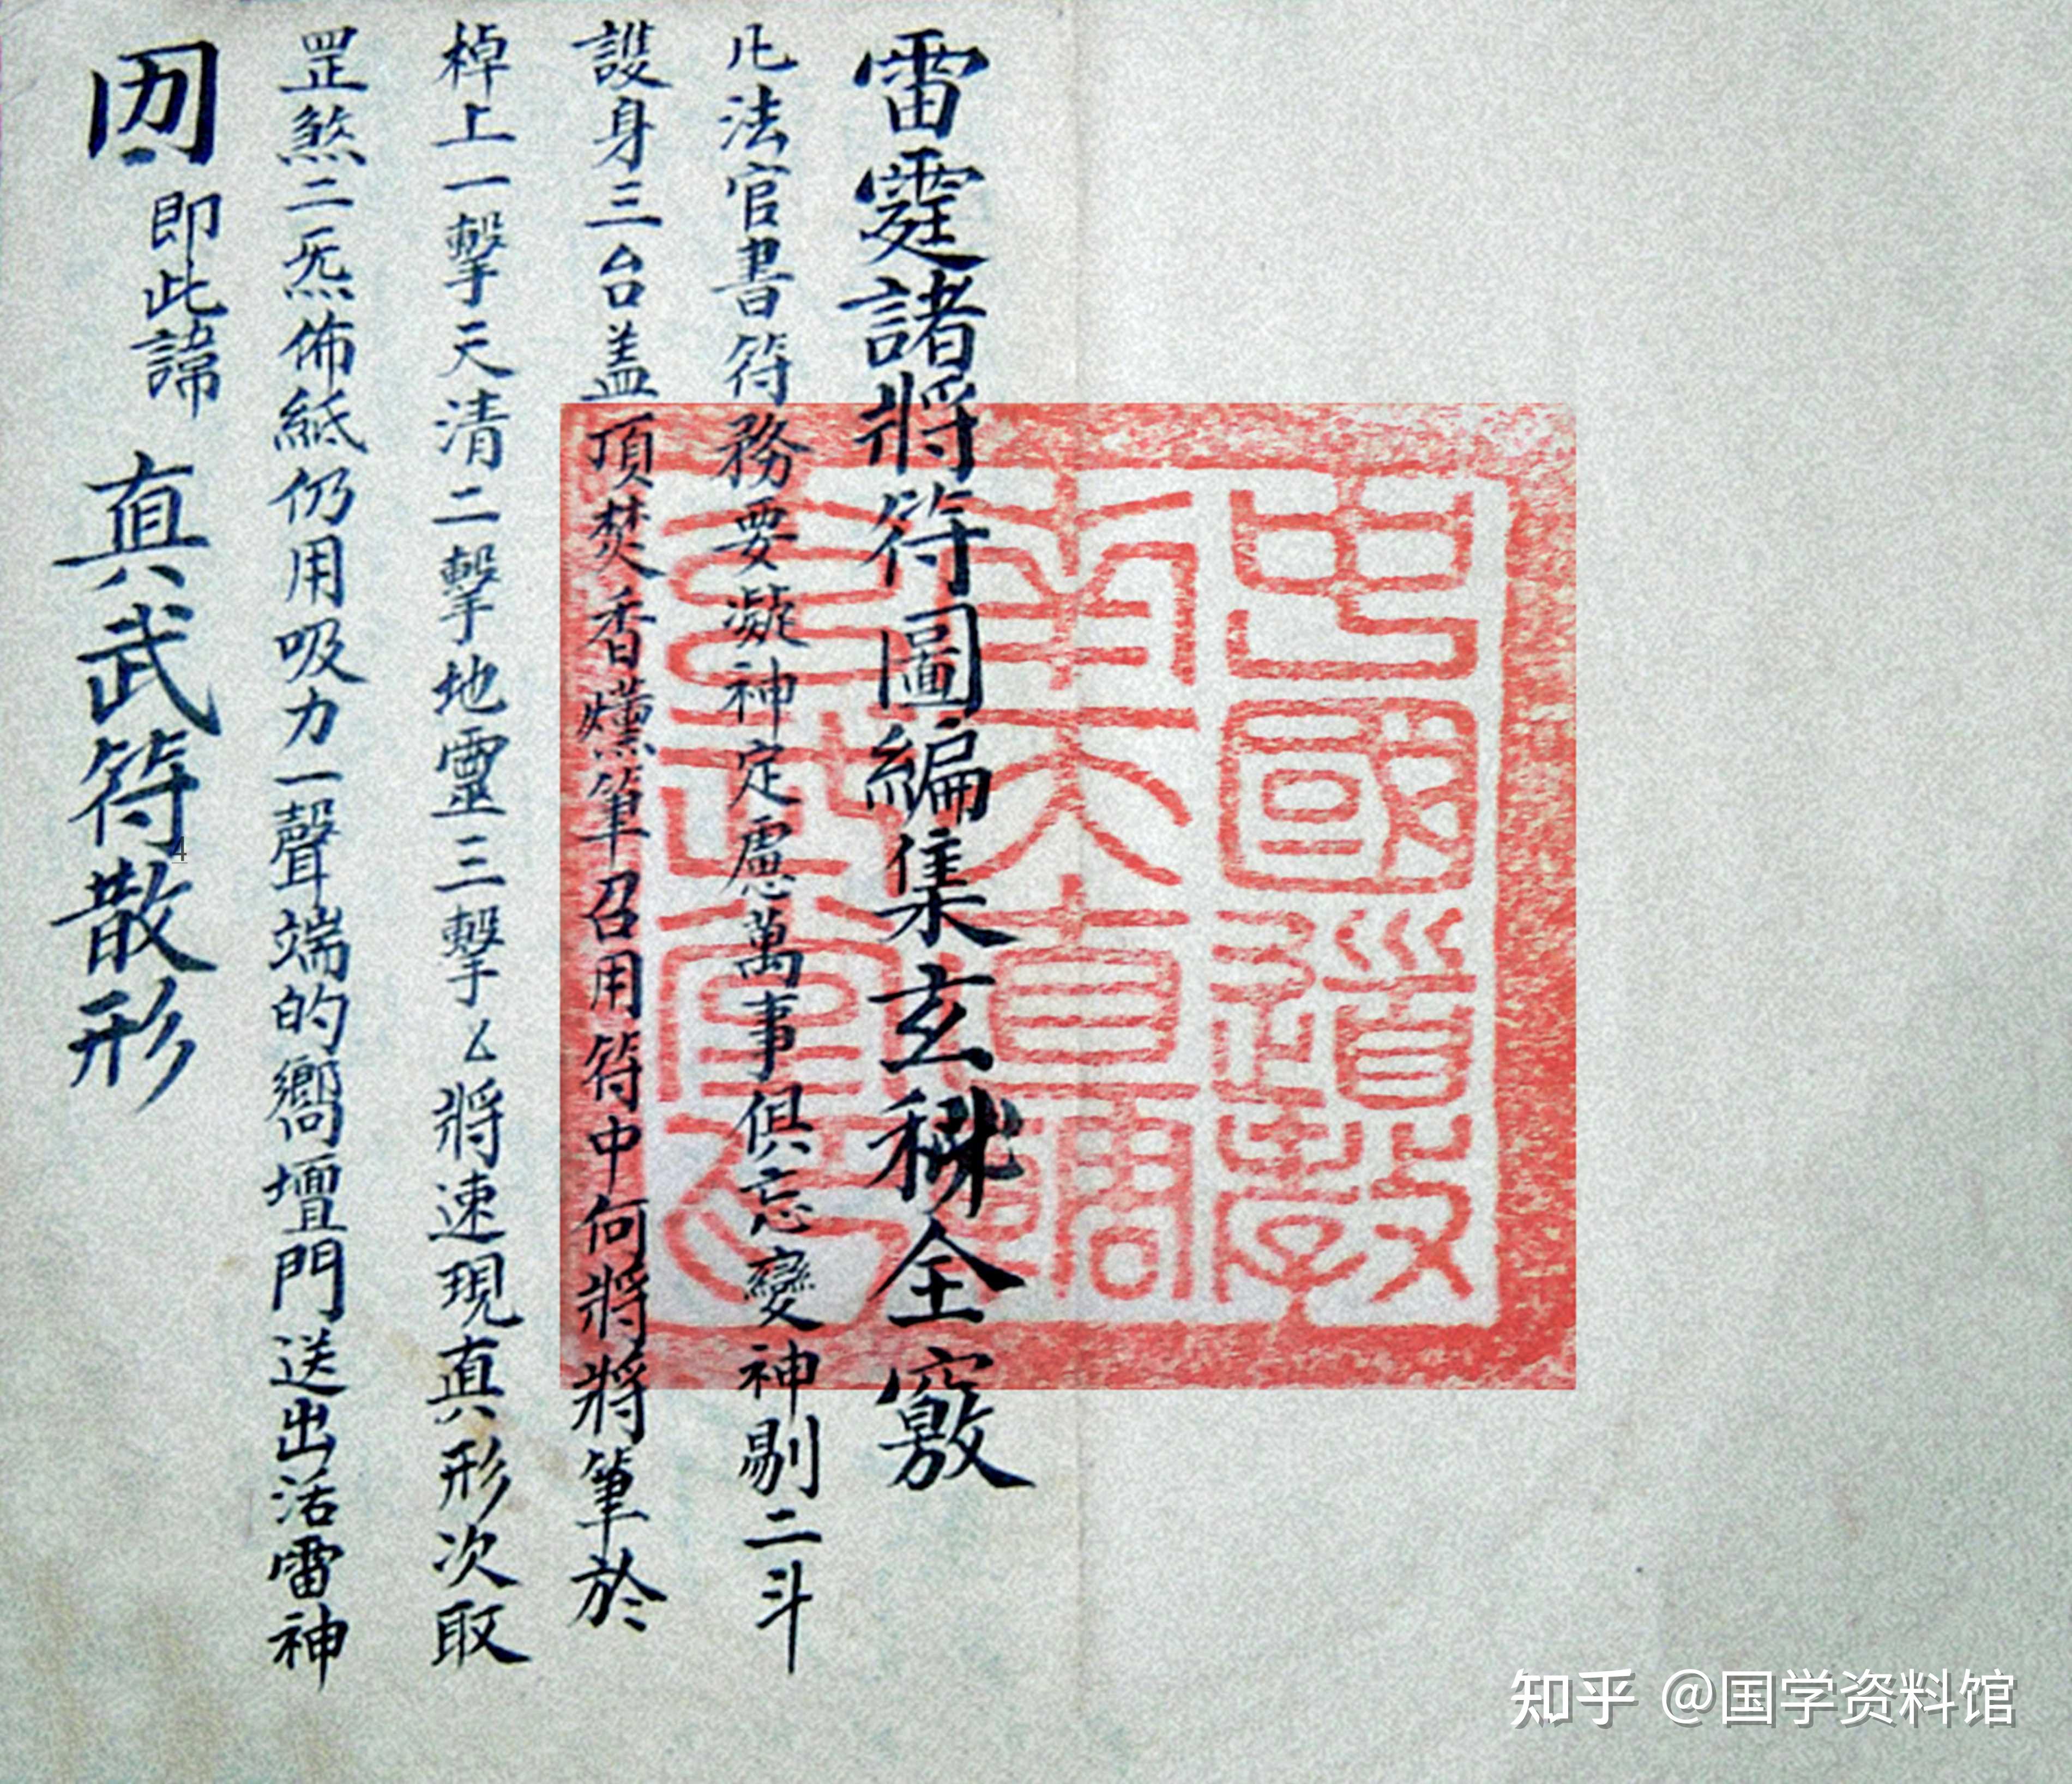 雷霆諸將符圖編集玄秘全竅
凡法官書符務要凝神定慮萬事俱忘變神剔二斗
護身三台盖頂焚香燻筆召用符中何將將筆於
棹上一擊天清二擊地靈三擊厶將速現真形次取
罡煞二炁佈紙仍用吸力一聲端的嚮壇門送出活雷神
即此諱 真武符散形
中國道教
南大直調
玄武堂印
4
知乎 @国学资料馆